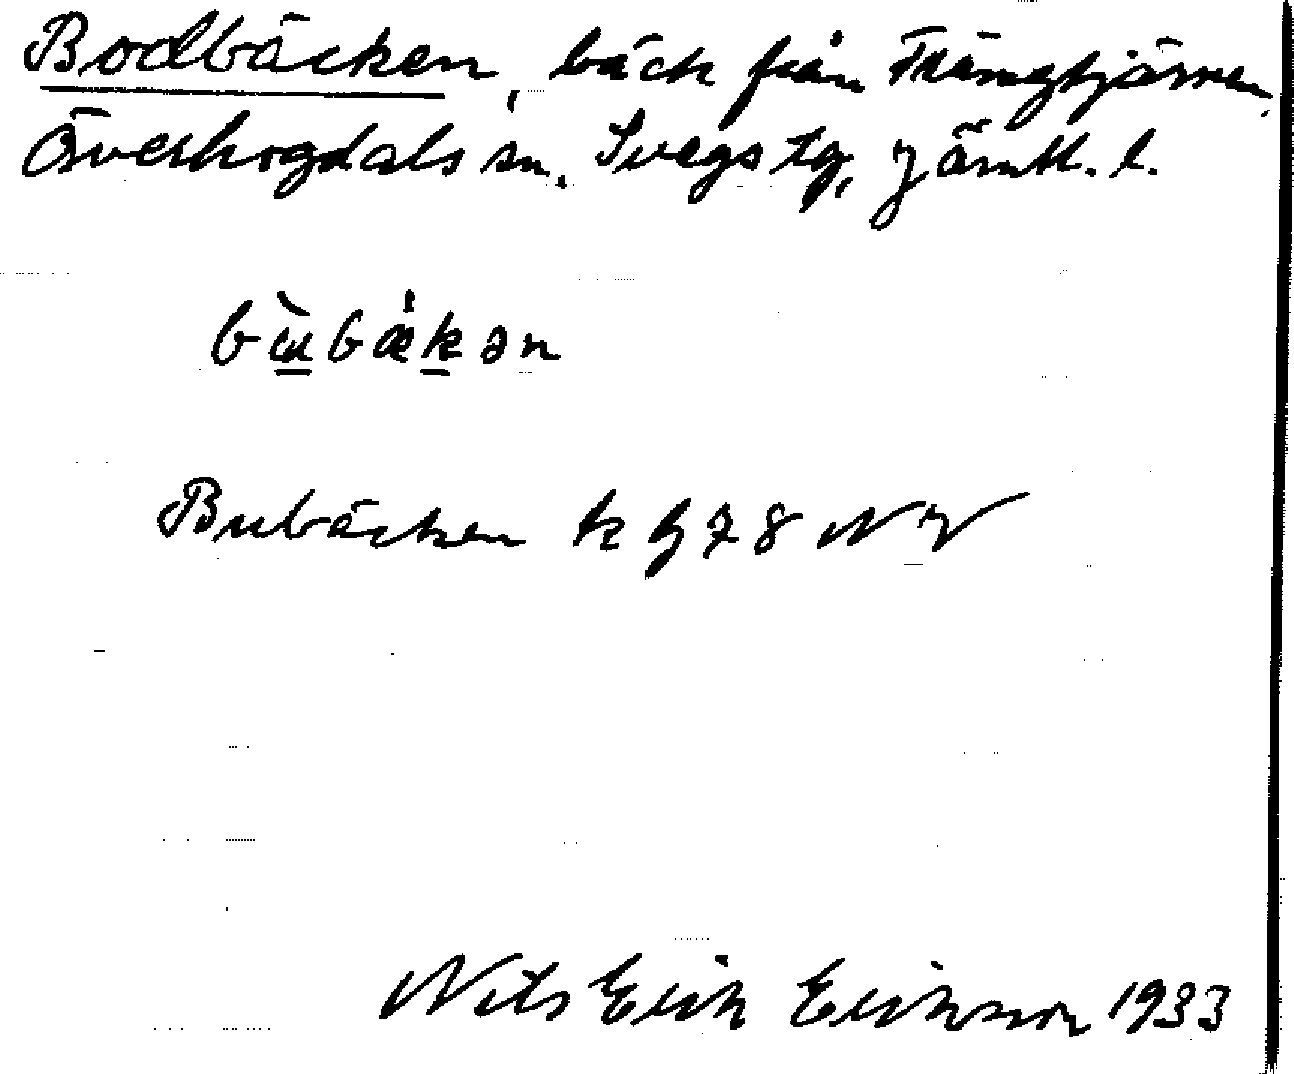 Bodbäcken, bäck från Trängtjärnen,
Överhogdals sn. Svegs tg, Jämtl. l.
bu̠bækən
Bubäcken k bl 78 NV
Nils Erik Erikson 1933